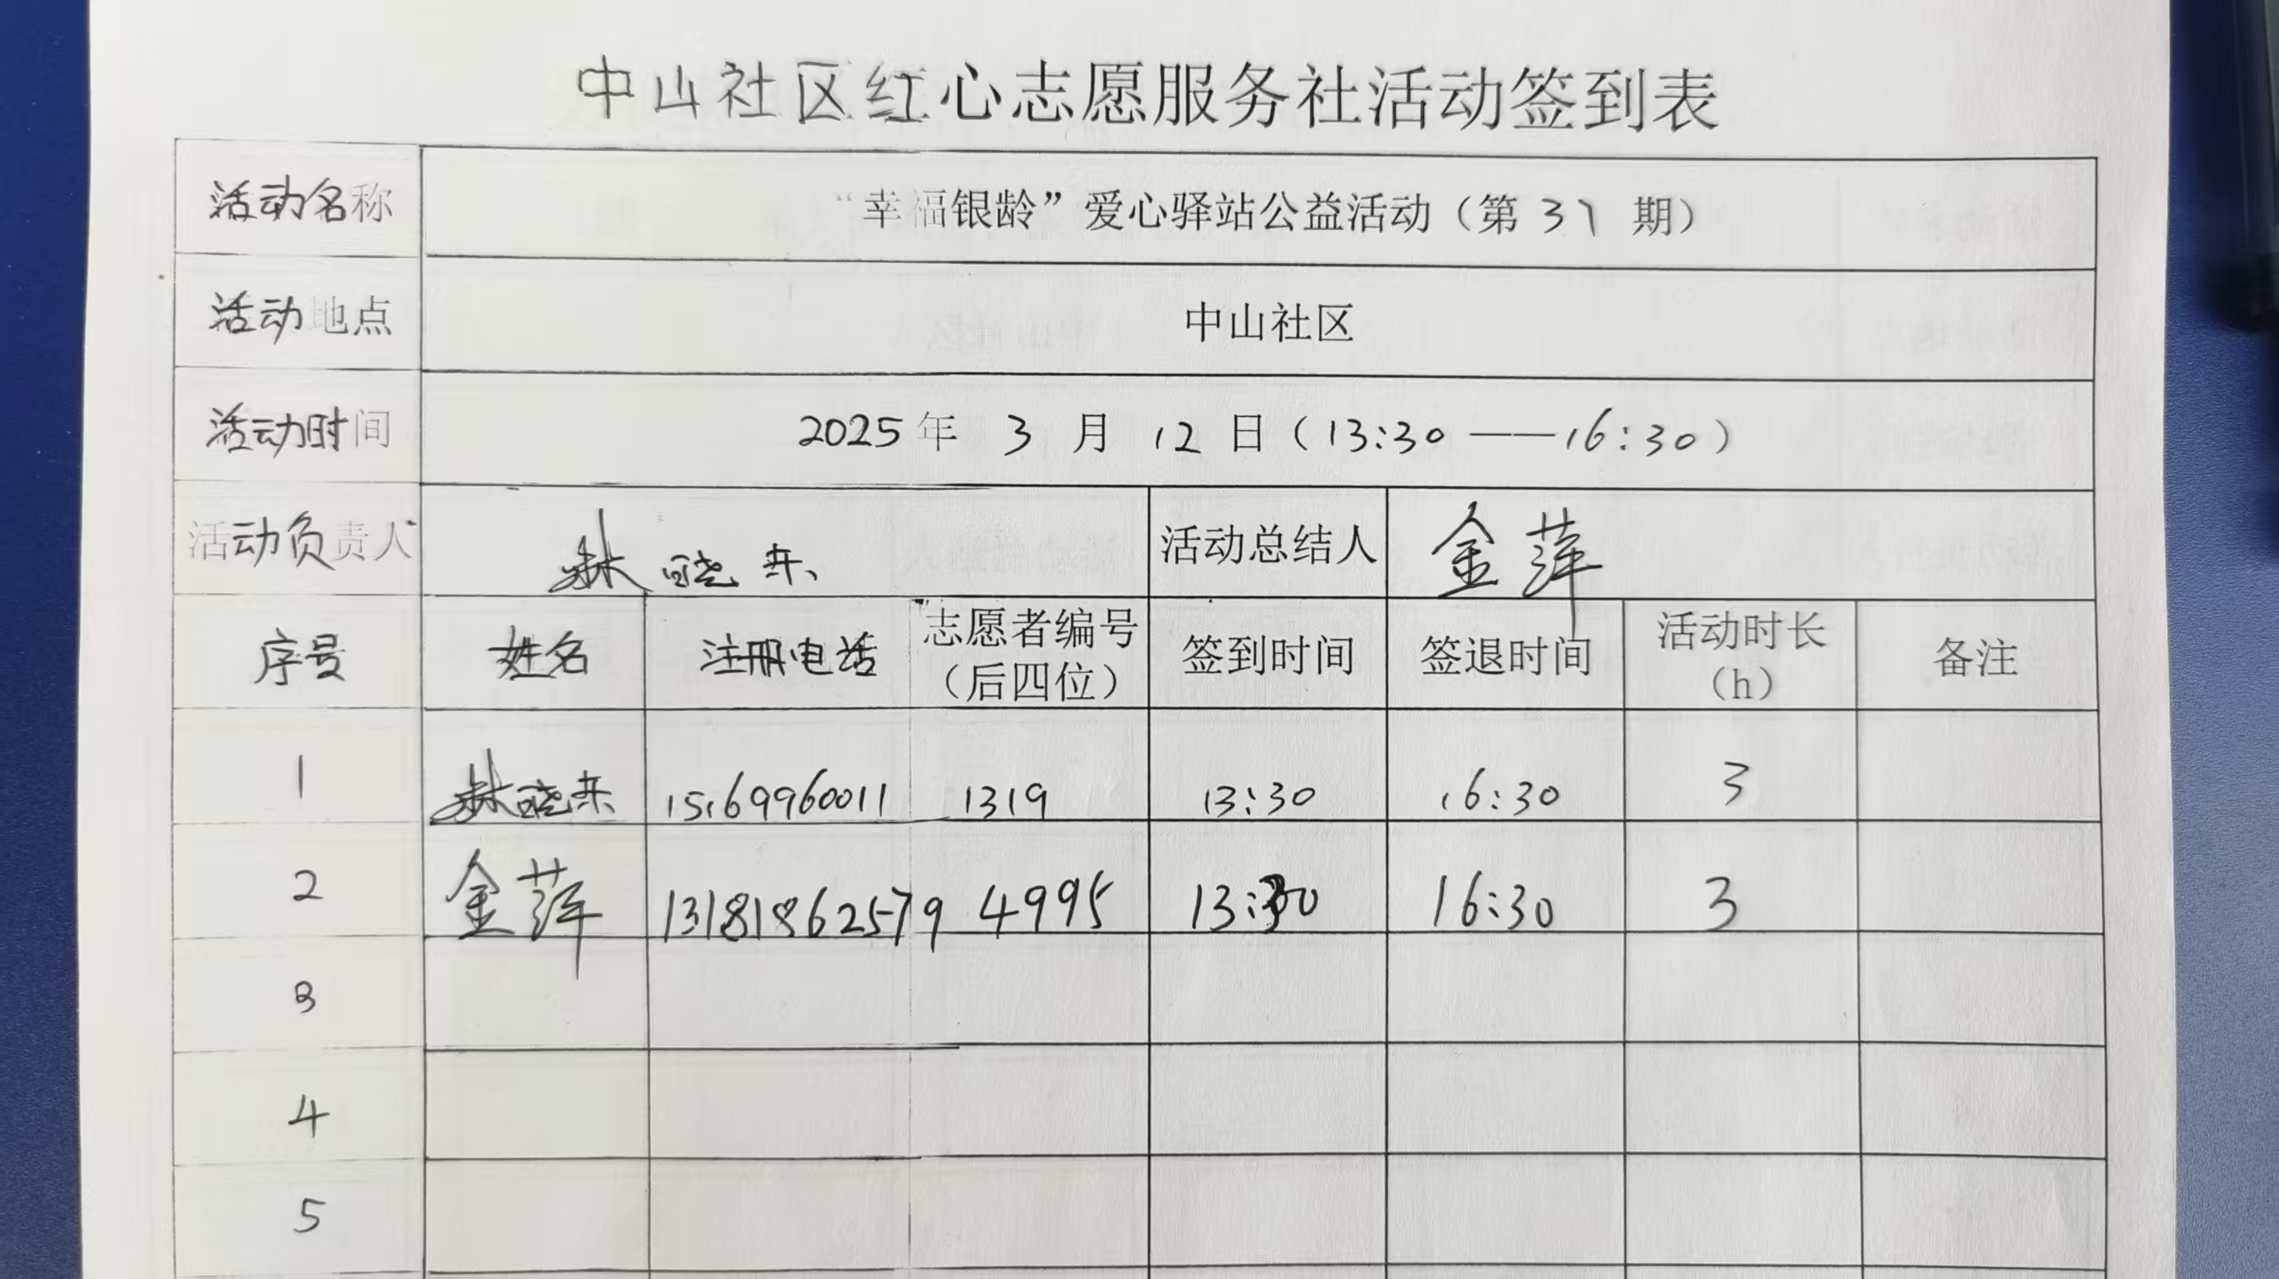 中山社区红心志愿服务社活动签到表
活动名称 “幸福银龄”爱心驿站公益活动（第 37 期）
活动地点 中山社区
活动时间 2025年 3 月 12 日（13:30 ——16:30）
活动负责人 晓东 活动总结人 金萍
序号 姓名 注册电话 志愿者编号（后四位） 签到时间 签退时间 活动时长（h） 备注
1 晓东 15169960011 1319 13:30 16:30 3
2 金萍 13181862579 4995 13:30 16:30 3
3
4
5